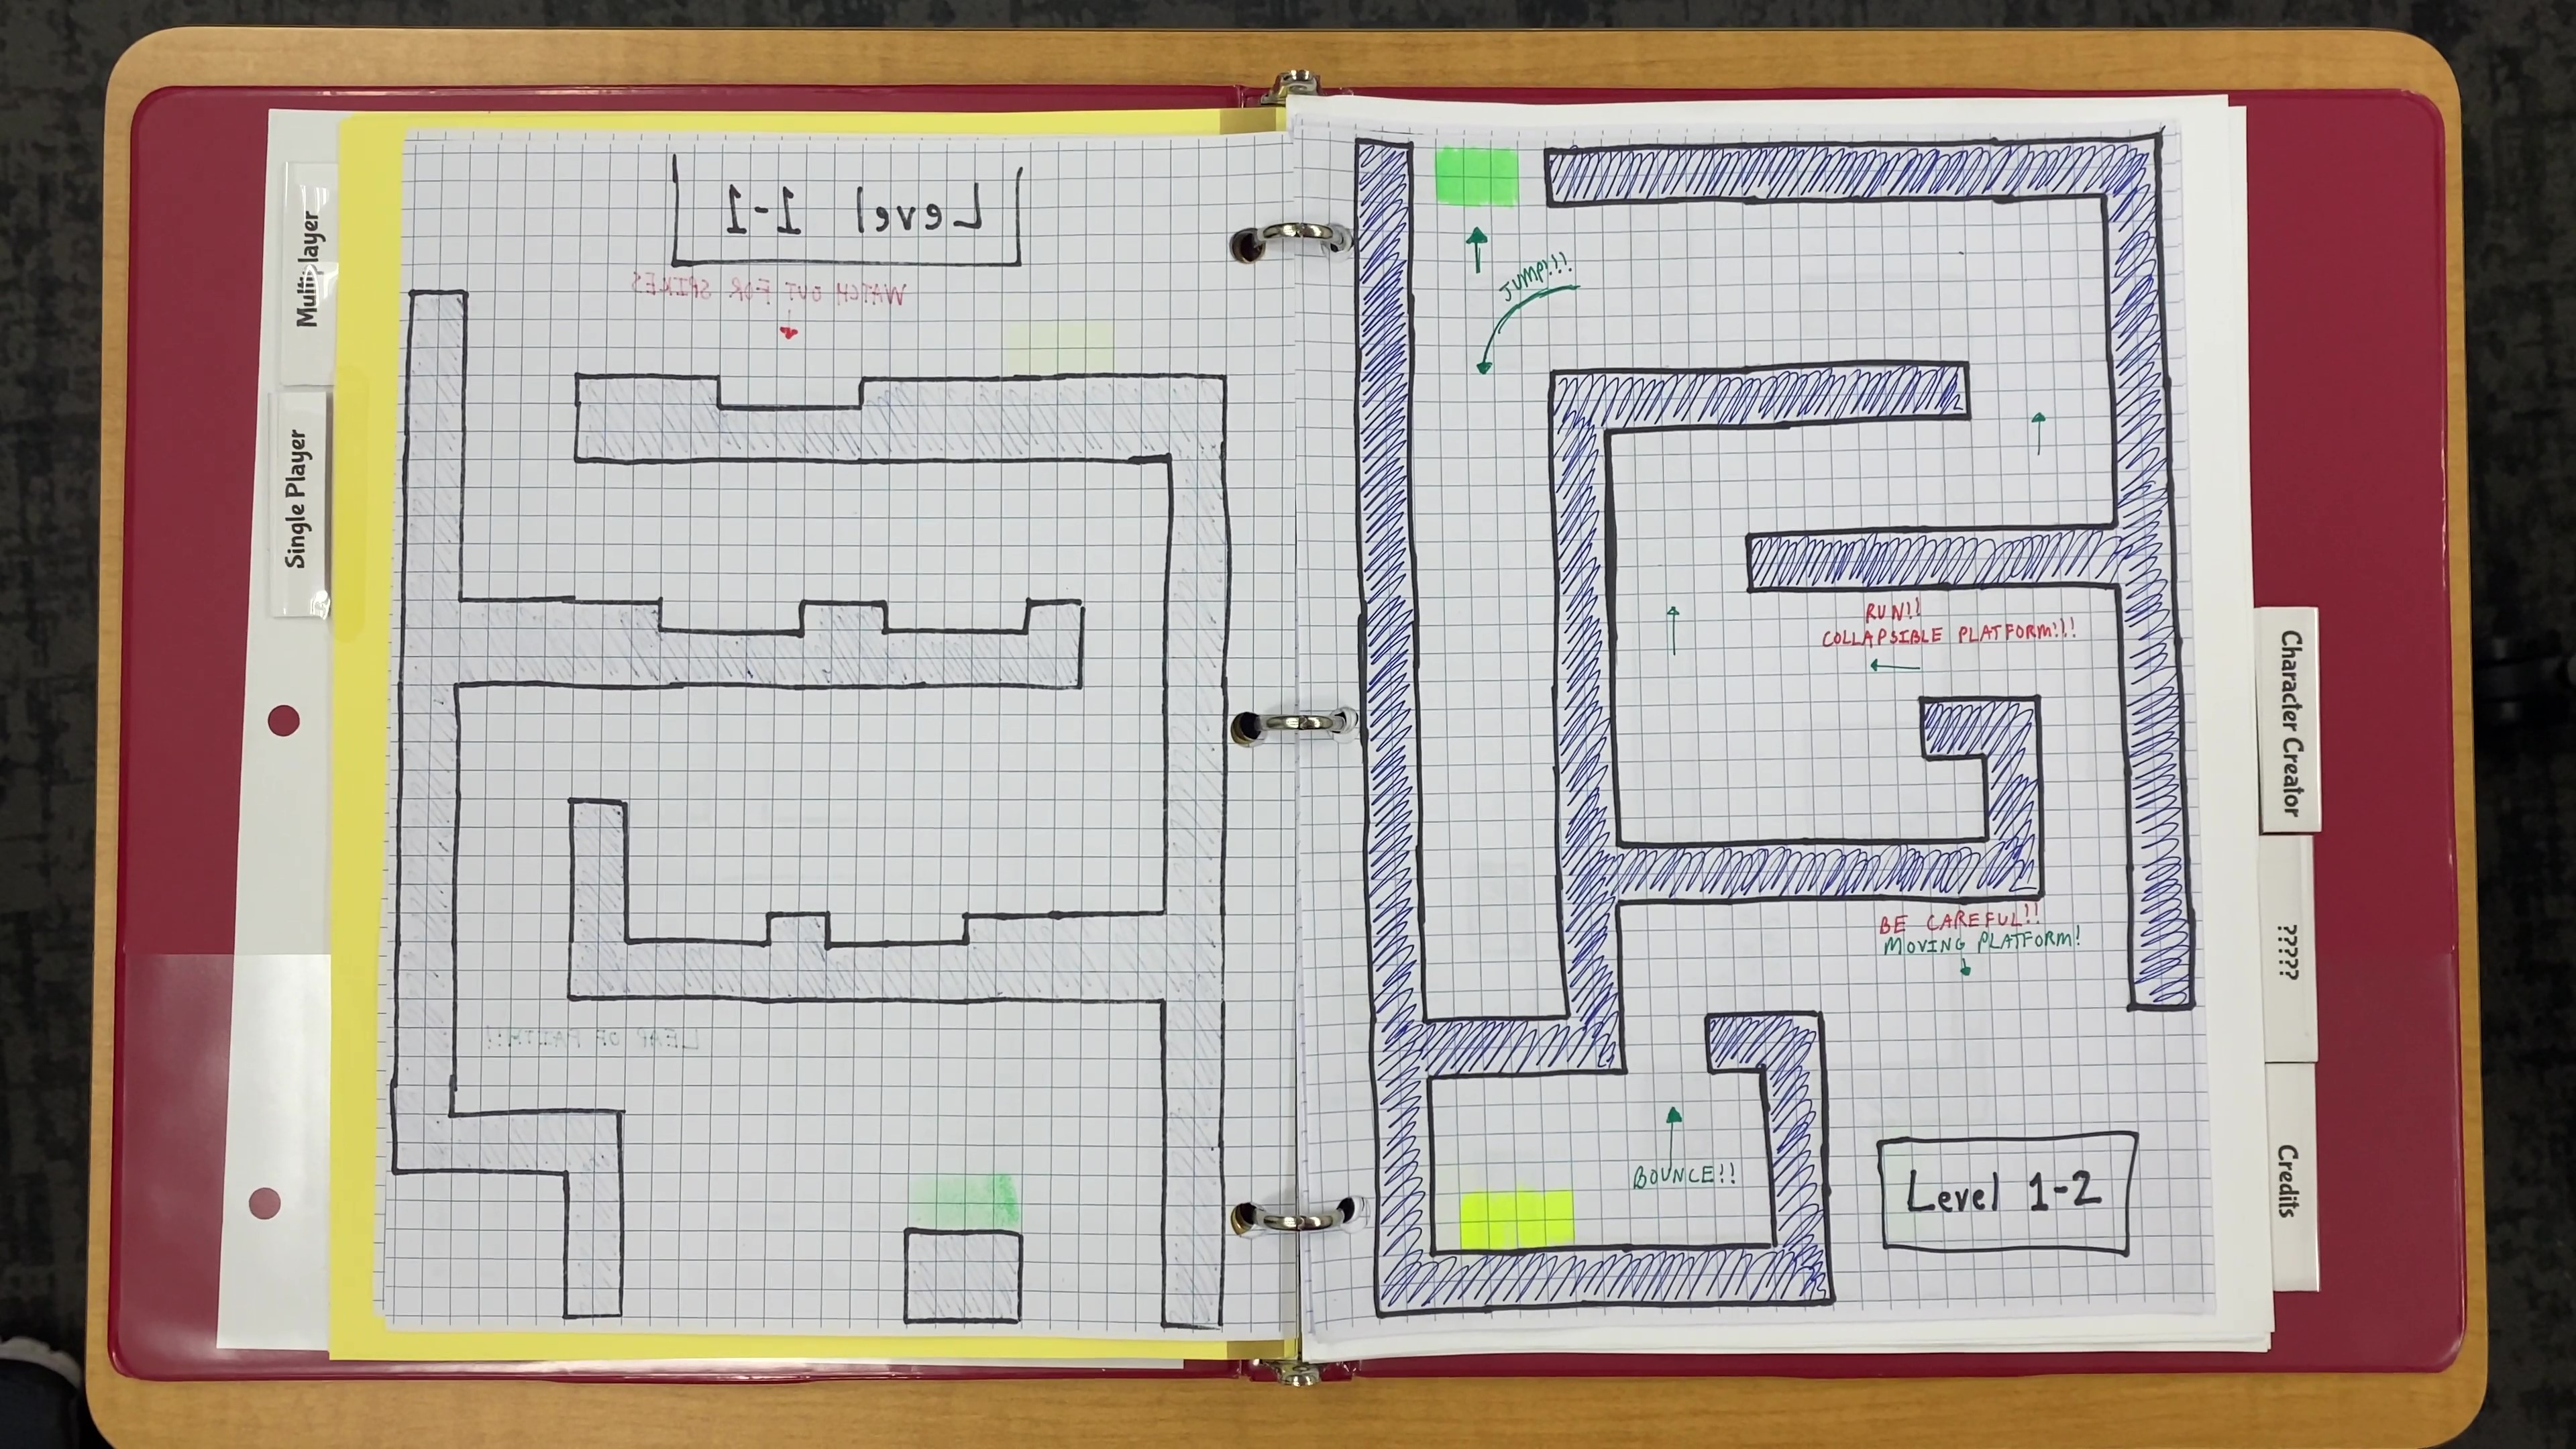 Multiplayer
Single Player
Level 1-1
WATCH OUT FOR SPIKES
LEAP OF FAITH!!
JUMP!!!
RUN!!
COLLAPSIBLE PLATFORM!!!
BE CAREFUL!!
MOVING PLATFORM!
BOUNCE!!
Level 1-2
Character Creator
?????
Credits